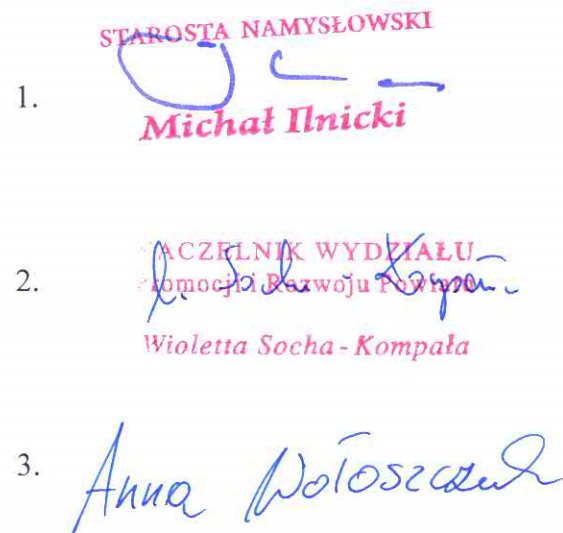 STAROSTA NAMYSŁOWSKI
1.
Michał Ilnicki
NACZELNIK WYDZIAŁU
2. Promocji i Rozwoju Powiatu
Wioletta Socha-Kompała
3. Anna Wołoszczuk